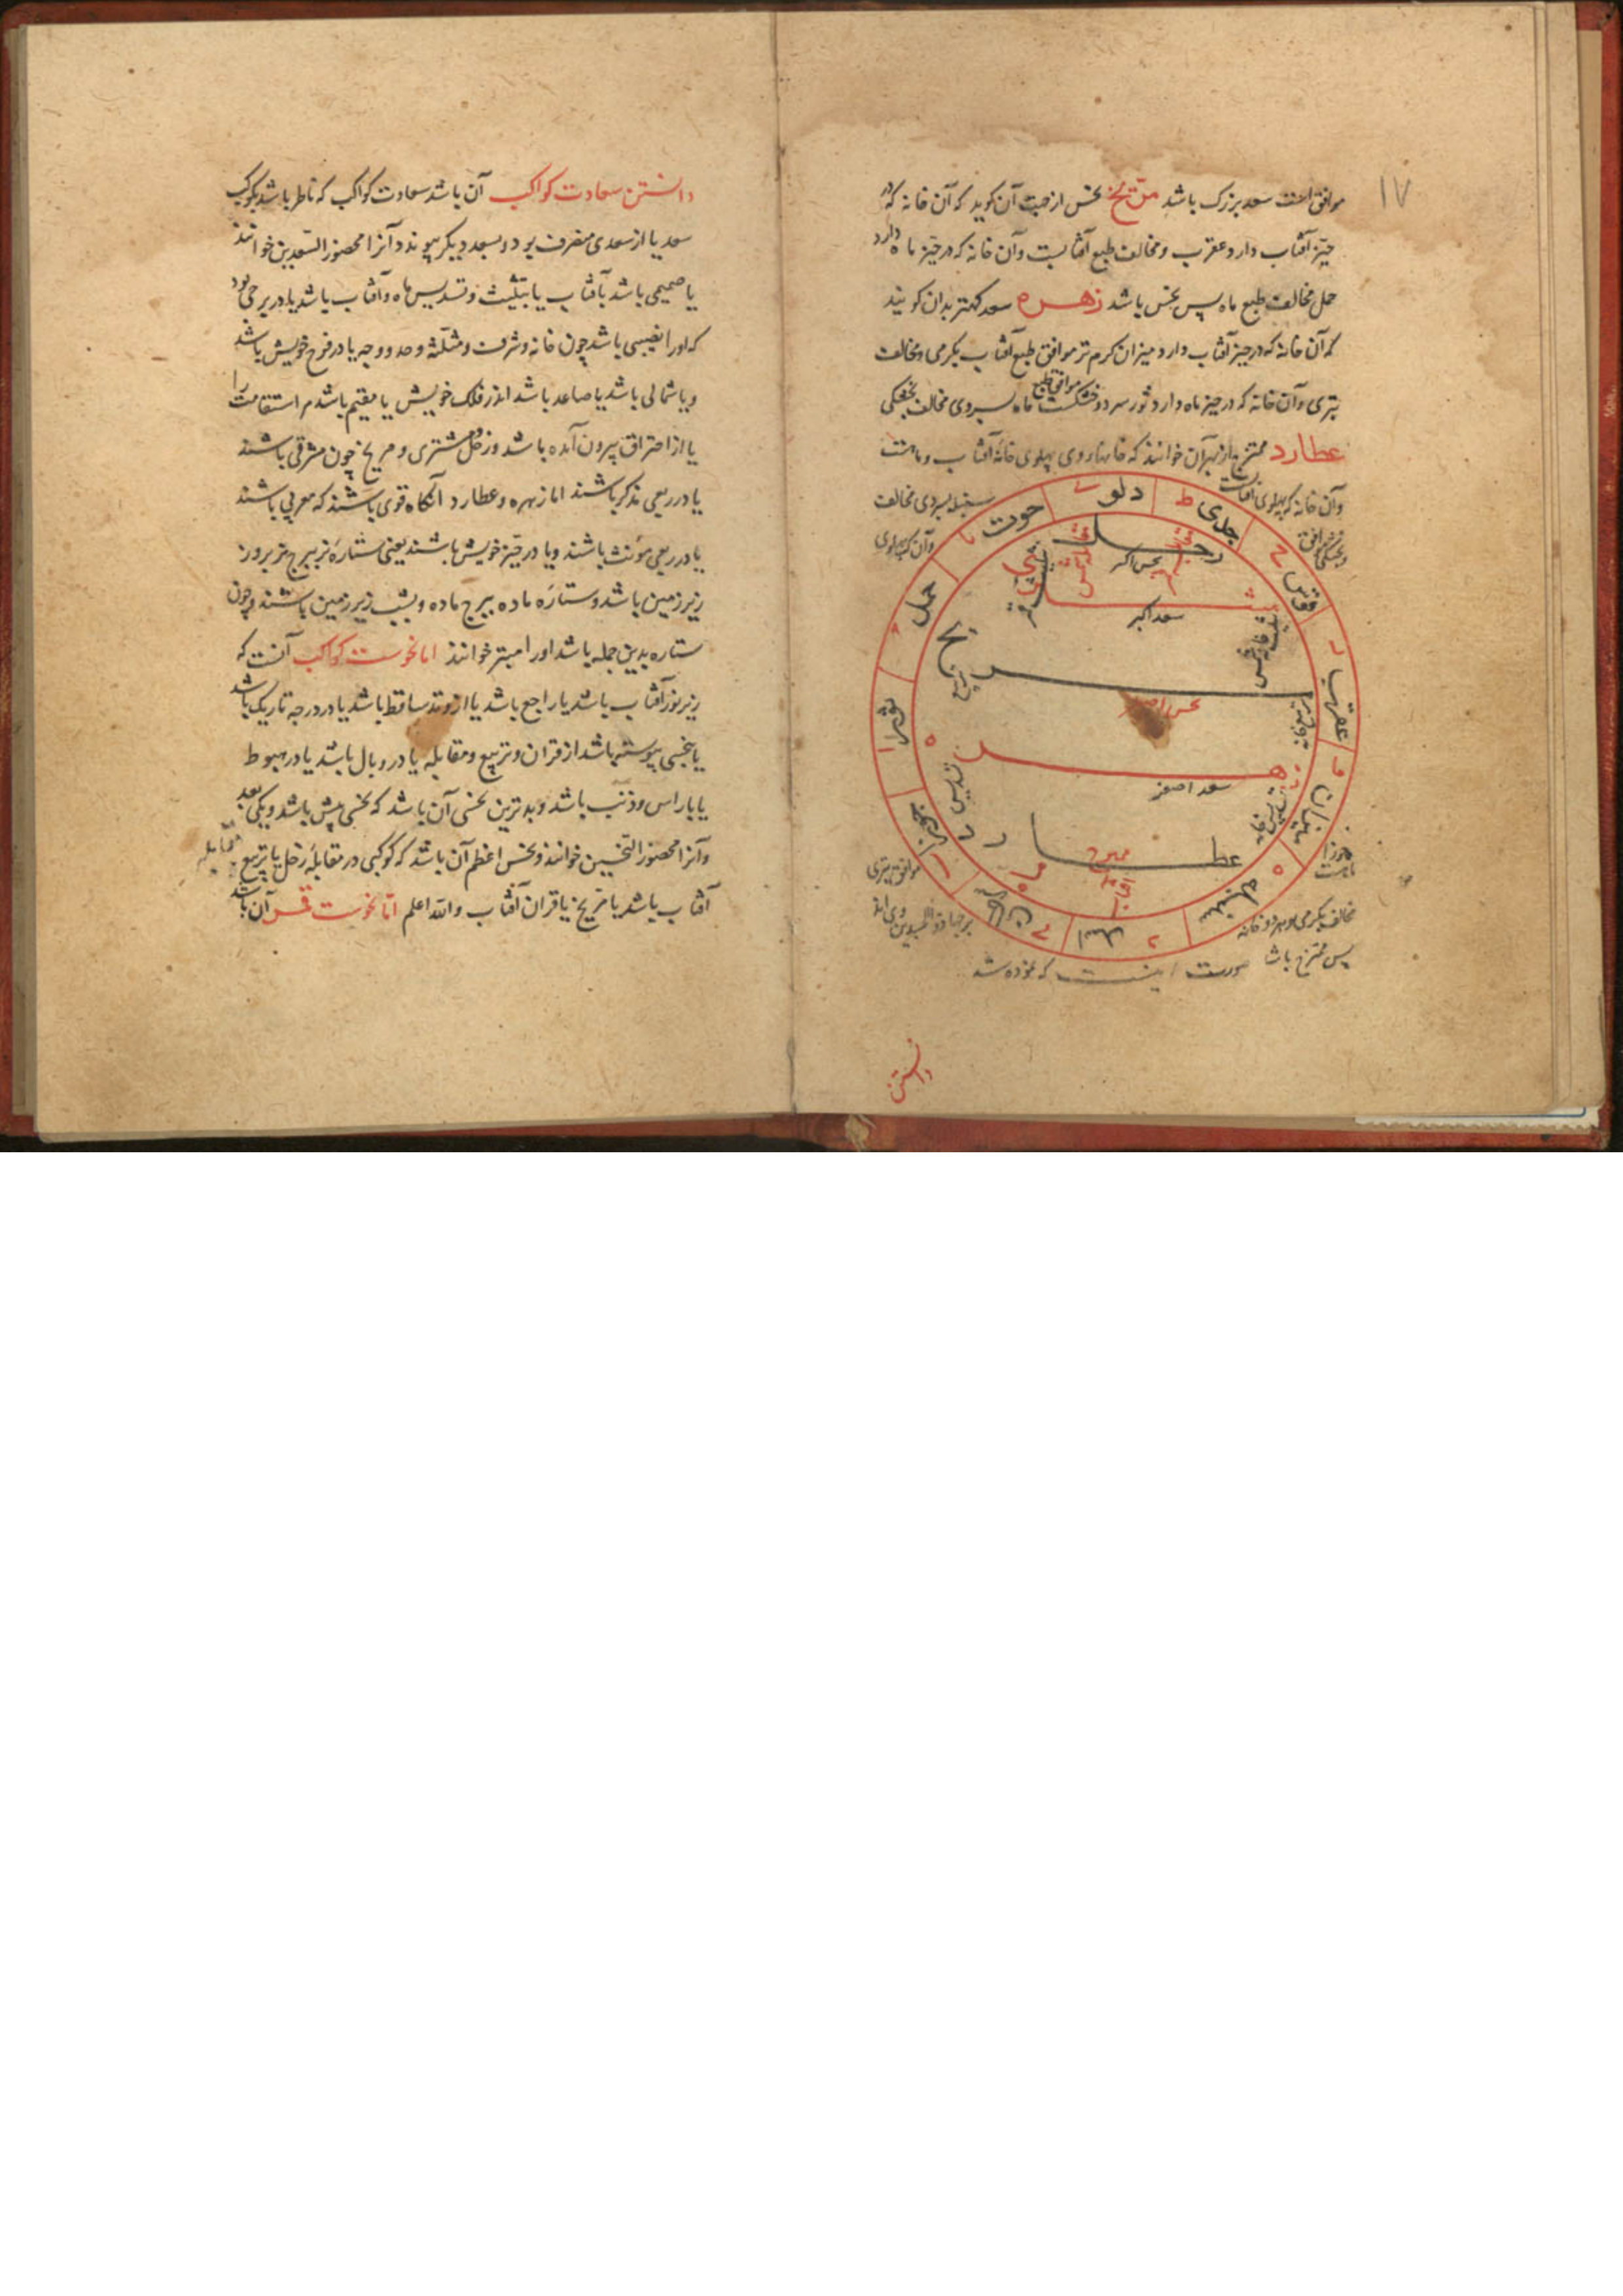 ۱۷
موافق است سعد بزرک باشد مریخ نحس ازجهت آن کوید که آن خانه که در
حیّز آفتاب دارد عقرب و مخالف طبع آفتابست وآن خانه که در حیّز ماه دارد
حمل مخالف طبع ماه پس نحس باشد زهره سعد کهتر بدان کویند
که آن خانه که در حیز آفتاب دارد میزان کرم تر موافق طبع آفتاب بکرمی و مخالف
بتری وآن خانه که در حیز ماه دارد ثور سرد و خشکست موافق طبع ماه بسردی مخالف بخشکی
عطارد ممتزج از بهر آن خوانند که خانهاء وی پهلوی خانه آفتاب و ماهست
وآن خانه که پهلوی آفتاب
سنبله بسردی مخالف
وآن که پهلوی
جوزا
ماهست
موافق بتری
مخالف بکرمی و هر دو خانه
پس ممتزج باشد
صورت اینست که نموده شد
دلو
جدی
قوس
عقرب
میزان
سنبله
اسد
سرطان
جوزا
ثور
حمل
حوت
زحل
نحس اکبر
مشتری
سعد اکبر
مریخ
نحس اصغر
زهره
سعد اصغر
عطارد
ممتزج
دانستن
دانستن سعادت کواکب آن باشد سعادت کواکب که ناظر باشد بکوکب
سعد یا از سعدی منصرف بود و بسعد دیکر پیوندد و آنرا محصور السّعدین خوانند
یا صمیمی باشد بآفتاب یا بتثلیث و تسدیس ماه و آفتاب باشد یا در برجی بود
که اورا نصیبی باشد چون خانه و شرف و مثلّثه و حد و وجه یا در فرح خویش باشد
و یا شمالی باشد یا صاعد باشد اندر فلک خویش یا مقیم باشد مر استقامت را
یا از احتراق بیرون آمده باشد و زحل و مشتری و مریخ چون مشرقی باشند
یا در ربعی مذکر باشند اما زهره و عطارد آنکاه قوی باشند که مغربی باشند
یا در ربعی مؤنث باشند ویا در حیّز خویش باشند یعنی ستارهٔ نر ببرج نر بروز
زیر زمین باشد و ستاره ماده ببرج ماده و بشب زیر زمین باشند و چون
ستاره بدین جمله باشد اورا مبتز خوانند اما نحوست کواکب آنست که
زیر نور آفتاب باشد یا راجع باشد یا از وتد ساقط باشد یا در درجه تاریک باشد
یا بنحسی پیوسته باشد از قران و تربیع و مقابله یا در وبال باشد یا در هبوط
یا با راس و ذنب باشد و بدترین نحسی آن باشد که نحسی پیش باشد و یکی بعد
وآنرا محصور النّحسین خوانند و نحس اعظم آن باشد که کوکبی در مقابلهٔ زحل یا تربیع
مقابله
آفتاب باشد یا مریخ یا قران آفتاب والله اعلم امّا نحوست قمر آن باشد